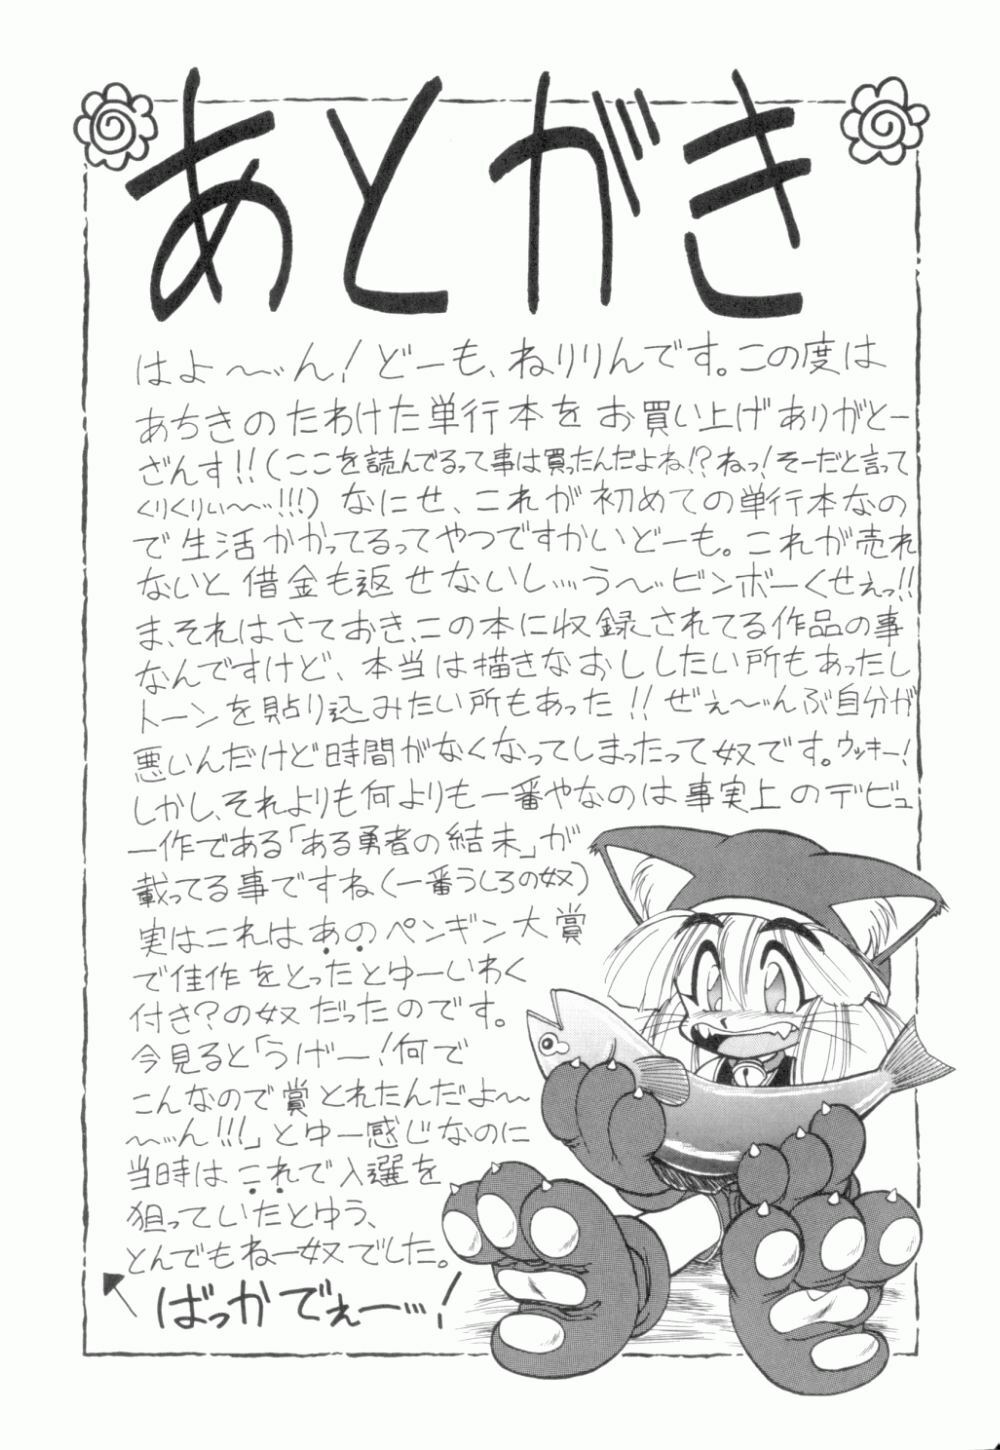 あとがき
はよ〜ッん!どーも、ねりりんです。この度は
あちきのたわけた単行本をお買い上げありがとー
ざんす!!(ここを読んでるって事は買ったんだよね!?ねっ!そーだと言って
くりくりぃ〜ッ!!!)なにせ、これが初めての単行本なの
で生活かかってるってやつですかいどーも。これが売れ
ないと借金も返せないしッう〜ッビンボーくせぇっ!!
ま、それはさておき、この本に収録されてる作品の事
なんですけど、本当は描きなおししたい所もあったし
トーンを貼り込みたい所もあった!!ぜぇ〜ッんぶ自分が
悪いんだけど時間がなくなってしまったって奴です。ウッキー!
しかし、それよりも何よりも一番やなのは事実上のデビュ
ー作である「ある勇者の結末」が
載ってる事ですね(一番うしろの奴)
実はこれはあのペンギン大賞
で佳作をとったとゆーいわく
付き?の奴だったのです。
今見ると「うげー!何で
こんなので賞とれたんだよ〜
〜ッん!!!」とゆー感じなのに
当時はこれで入選を
狙っていたとゆう、
とんでもねー奴でした。
ばっかでぇーッ!